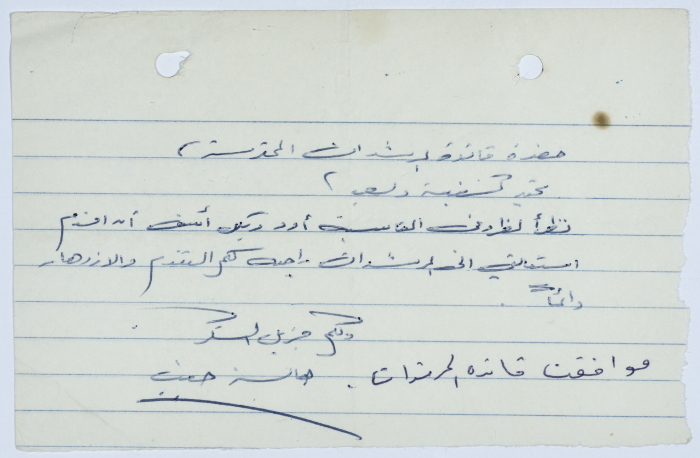 حضرة قائدة المرشدات المحترمة ،
تحية كشفية وبعد ،
نظراً لظروفي القاسية أود وبكل أسف أن اقدم
استقالتي الى المرشدات راجية لكم التقدم والازدهار
دائماً .
ولكم جزيل الشكر
موافقة قائدة المرشدات .